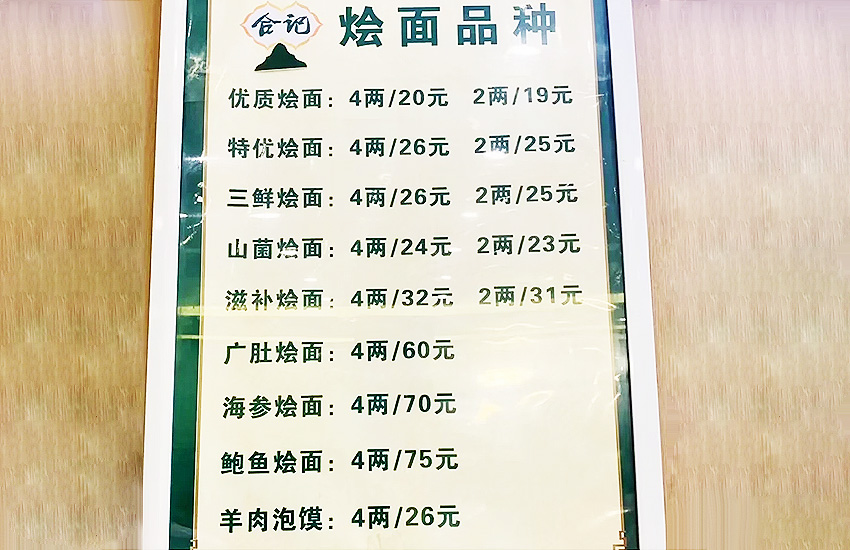 合记
烩面品种
优质烩面：4两/20元 2两/19元
特优烩面：4两/26元 2两/25元
三鲜烩面：4两/26元 2两/25元
山菌烩面：4两/24元 2两/23元
滋补烩面：4两/32元 2两/31元
广肚烩面：4两/60元
海参烩面：4两/70元
鲍鱼烩面：4两/75元
羊肉泡馍：4两/26元